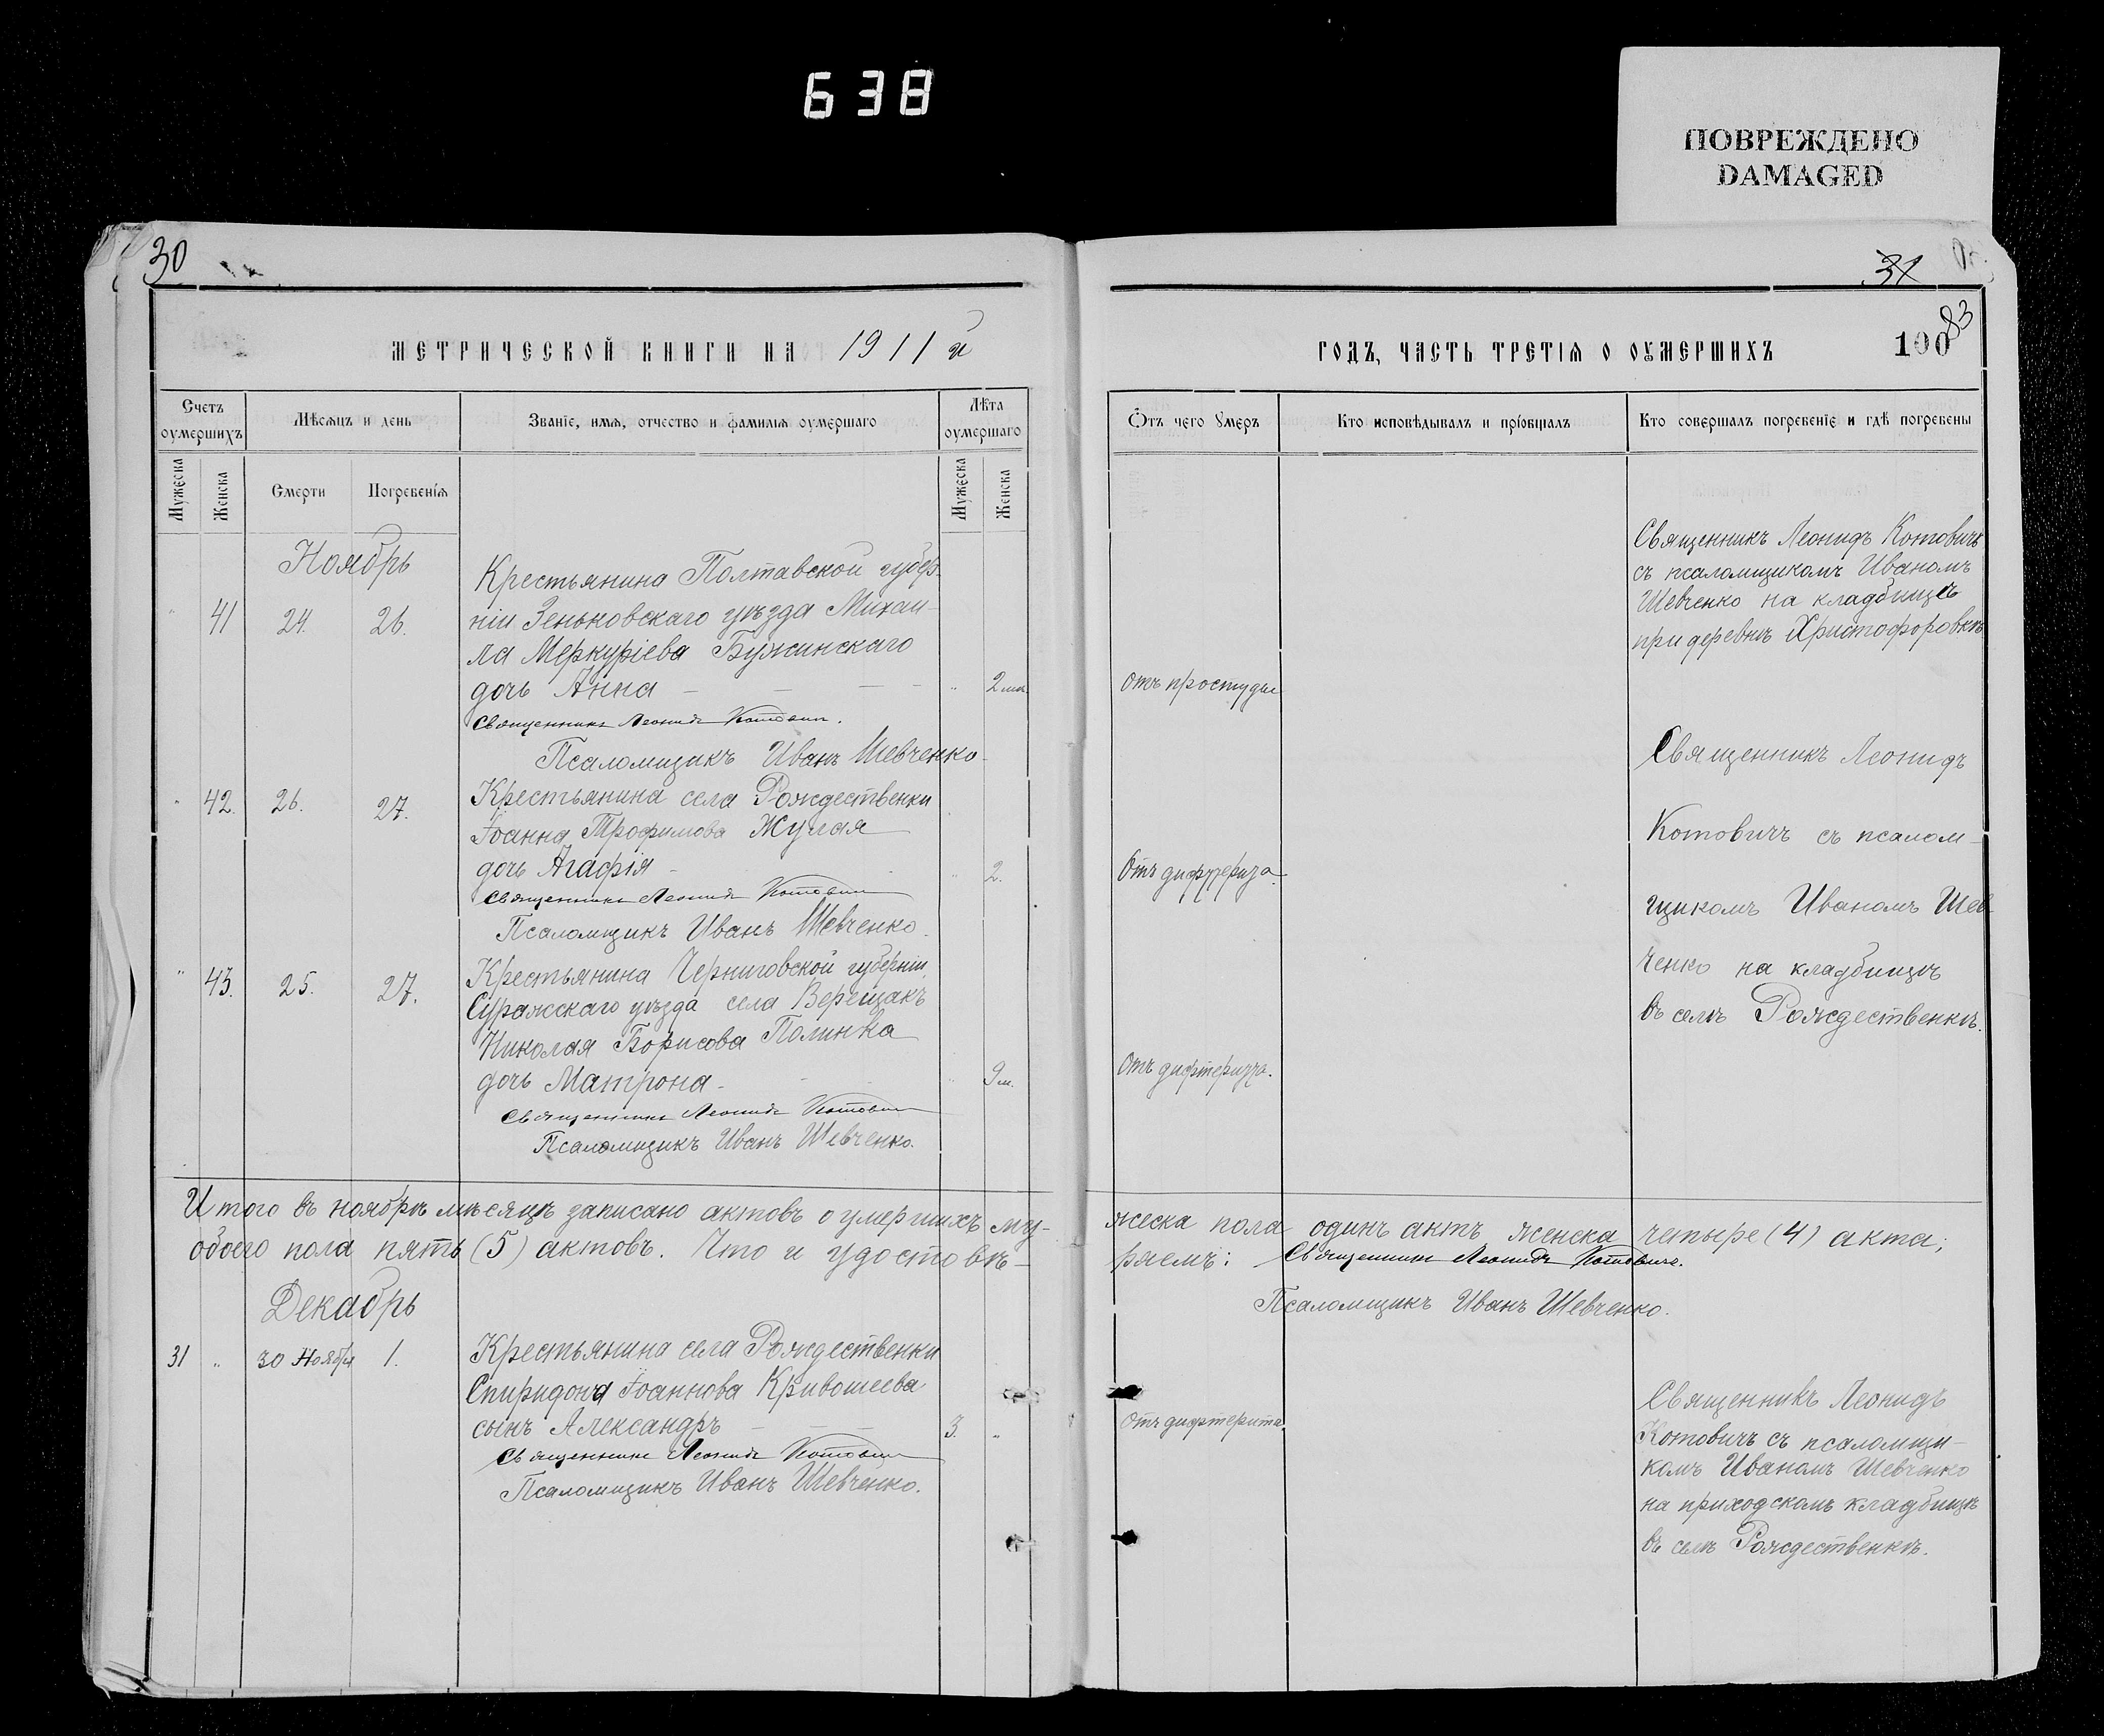 638
ПОВРЕЖДЕНО
DAMAGED
30
МЕТРИЧЕСКОЙ КНИГИ НА 1911 й
Счетъ оумершихъ
Мѣсяцъ и день
Званіе, имя, отчество и фамилія оумершаго
Лѣта оумершаго
Мужеска
Женска
Смерти
Погребенія
Мужеска
Женска
Ноябрь
" 41 24. 26.
Крестьянина Полтавской губер-
ніи Зеньковскаго уѣзда Михаи-
ла Меркуріева Бужинскаго
дочь Анна — — — " 2 мѣ.
Священникъ Леонидъ Котович.
Псаломщикъ Иванъ Шевченко
" 42. 26. 27.
Крестьянина села Рождественки
Іоанна Трофимова Жулая
дочь Агафія - " 2.
Священникъ Леонидъ Котович
Псаломщикъ Иванъ Шевченко.
" 43. 25. 27.
Крестьянина Черниговской губерніи,
Суражскаго уѣзда села Верещакъ
Николая Борисова Полинка
дочь Матрона - " 9 м.
Священникъ Леонидъ Котович
Псаломщикъ Иванъ Шевченко.
Итого въ ноябрѣ мѣсяцѣ записано актовъ о умершихъ му-
обоего пола пять (5) актовъ. Что и удостовѣ-
Декабрь
31 " 30 Ноября 1.
Крестьянина села Рождественки
Спиридона Іоаннова Кривошеева
сынъ Александръ — — — 3. "
Священникъ Леонидъ Котович
Псаломщикъ Иванъ Шевченко.
31
83
100
ГОДЪ, ЧАСТЬ ТРЕТІЯ О ОУМЕРШИХЪ
Ѿтъ чего Умеръ
Кто исповѣдывалъ и пріобщалъ
Кто совершалъ погребеніе и гдѣ погребены
Священникъ Леонидъ Котовичъ
съ псаломщикомъ Иваномъ
Шевченко на кладбищѣ
при деревнѣ Христофоровкѣ
отъ простуды
Священникъ Леонидъ
Котовичъ съ псалом-
щикомъ Иваномъ Шев
ченко на кладбищѣ
въ селѣ Рождественкѣ.
Отъ
Отъ
жеска пола одинъ актъ женска четыре (4) акта;
ряемъ: Священникъ Леонидъ Котовичъ.
Псаломщикъ Иванъ Шевченко.
Отъ дифтерита.
Священникъ Леонидъ
Котовичъ съ псаломщи-
комъ Иваномъ Шевченко
на приходскомъ кладбищѣ
въ селѣ Рождественкѣ.